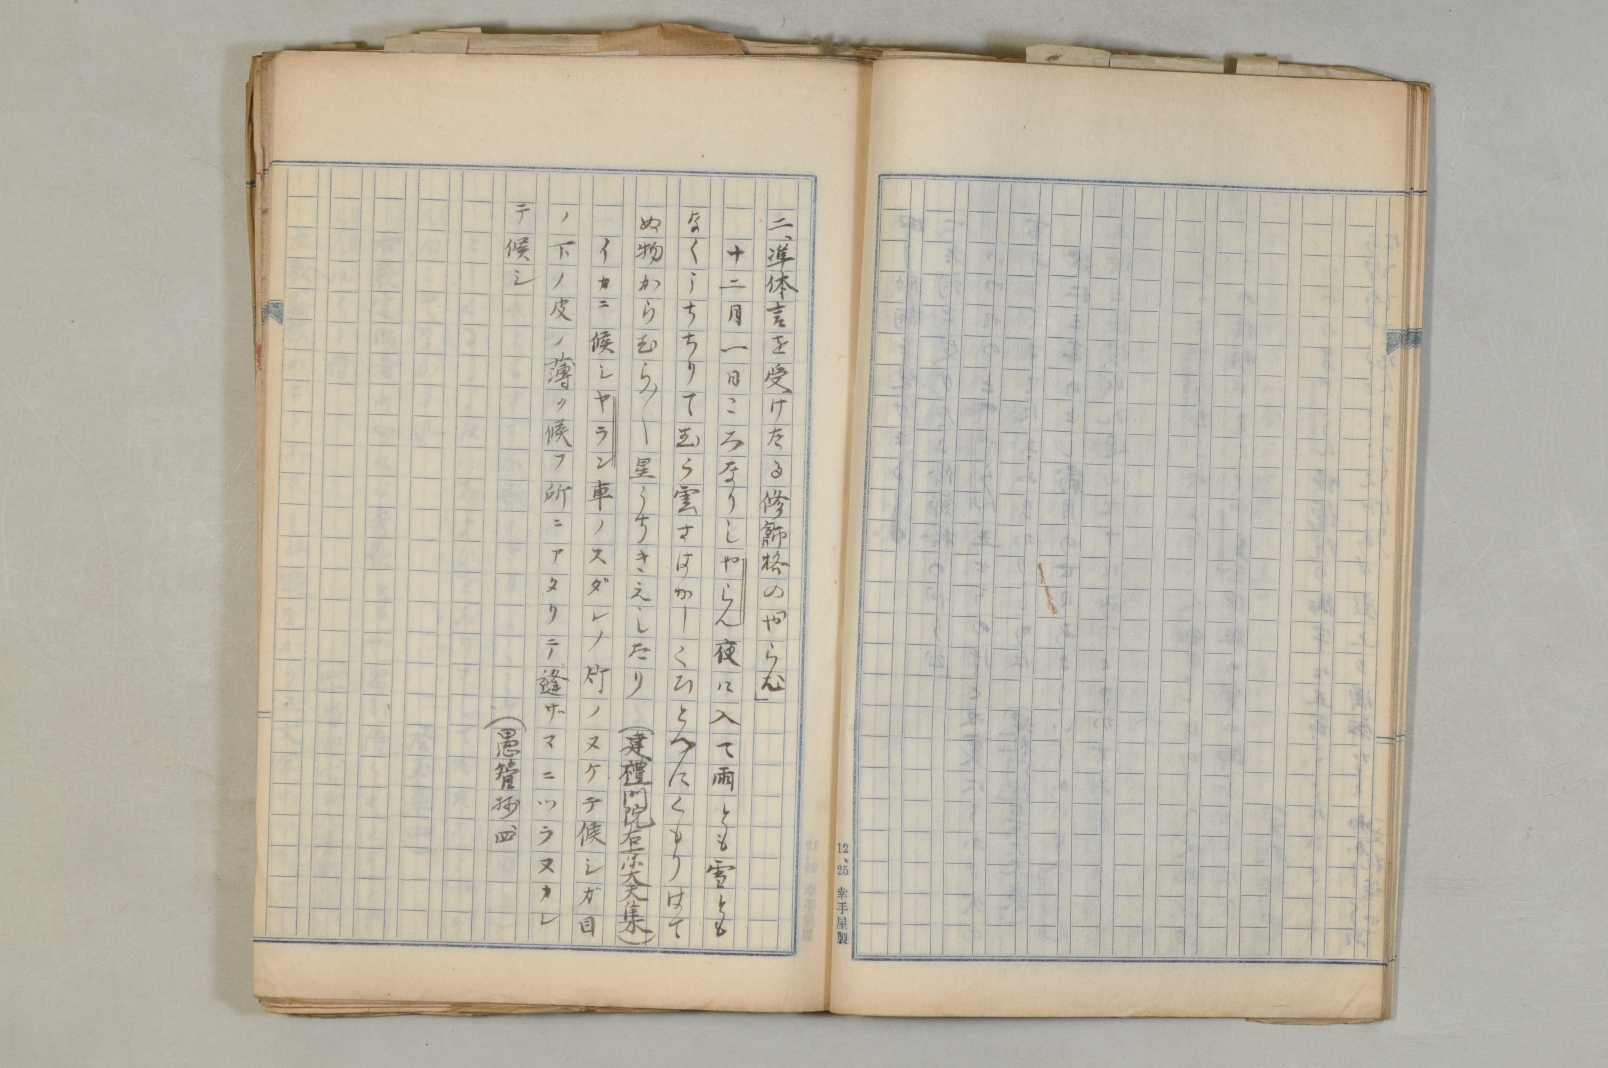 12、25 幸手屋製
二、準体言を受けたる修飾格の「やらむ」
十二月一日ころなりしやらん夜に入て雨とも雪とも
なくうちちりてむら雲さはかしくひとへにくもりはて
ぬ物からむら〳〵星うちきえしたり(建禮門院右京大夫集)
イカニ候シヤラン車ノスダレノ竹ノヌケテ候シガ目
ノ下ノ皮ノ薄ク候フ所ニアタリテ縫ザマニツラヌカレ
テ候シ
(愚管抄 四